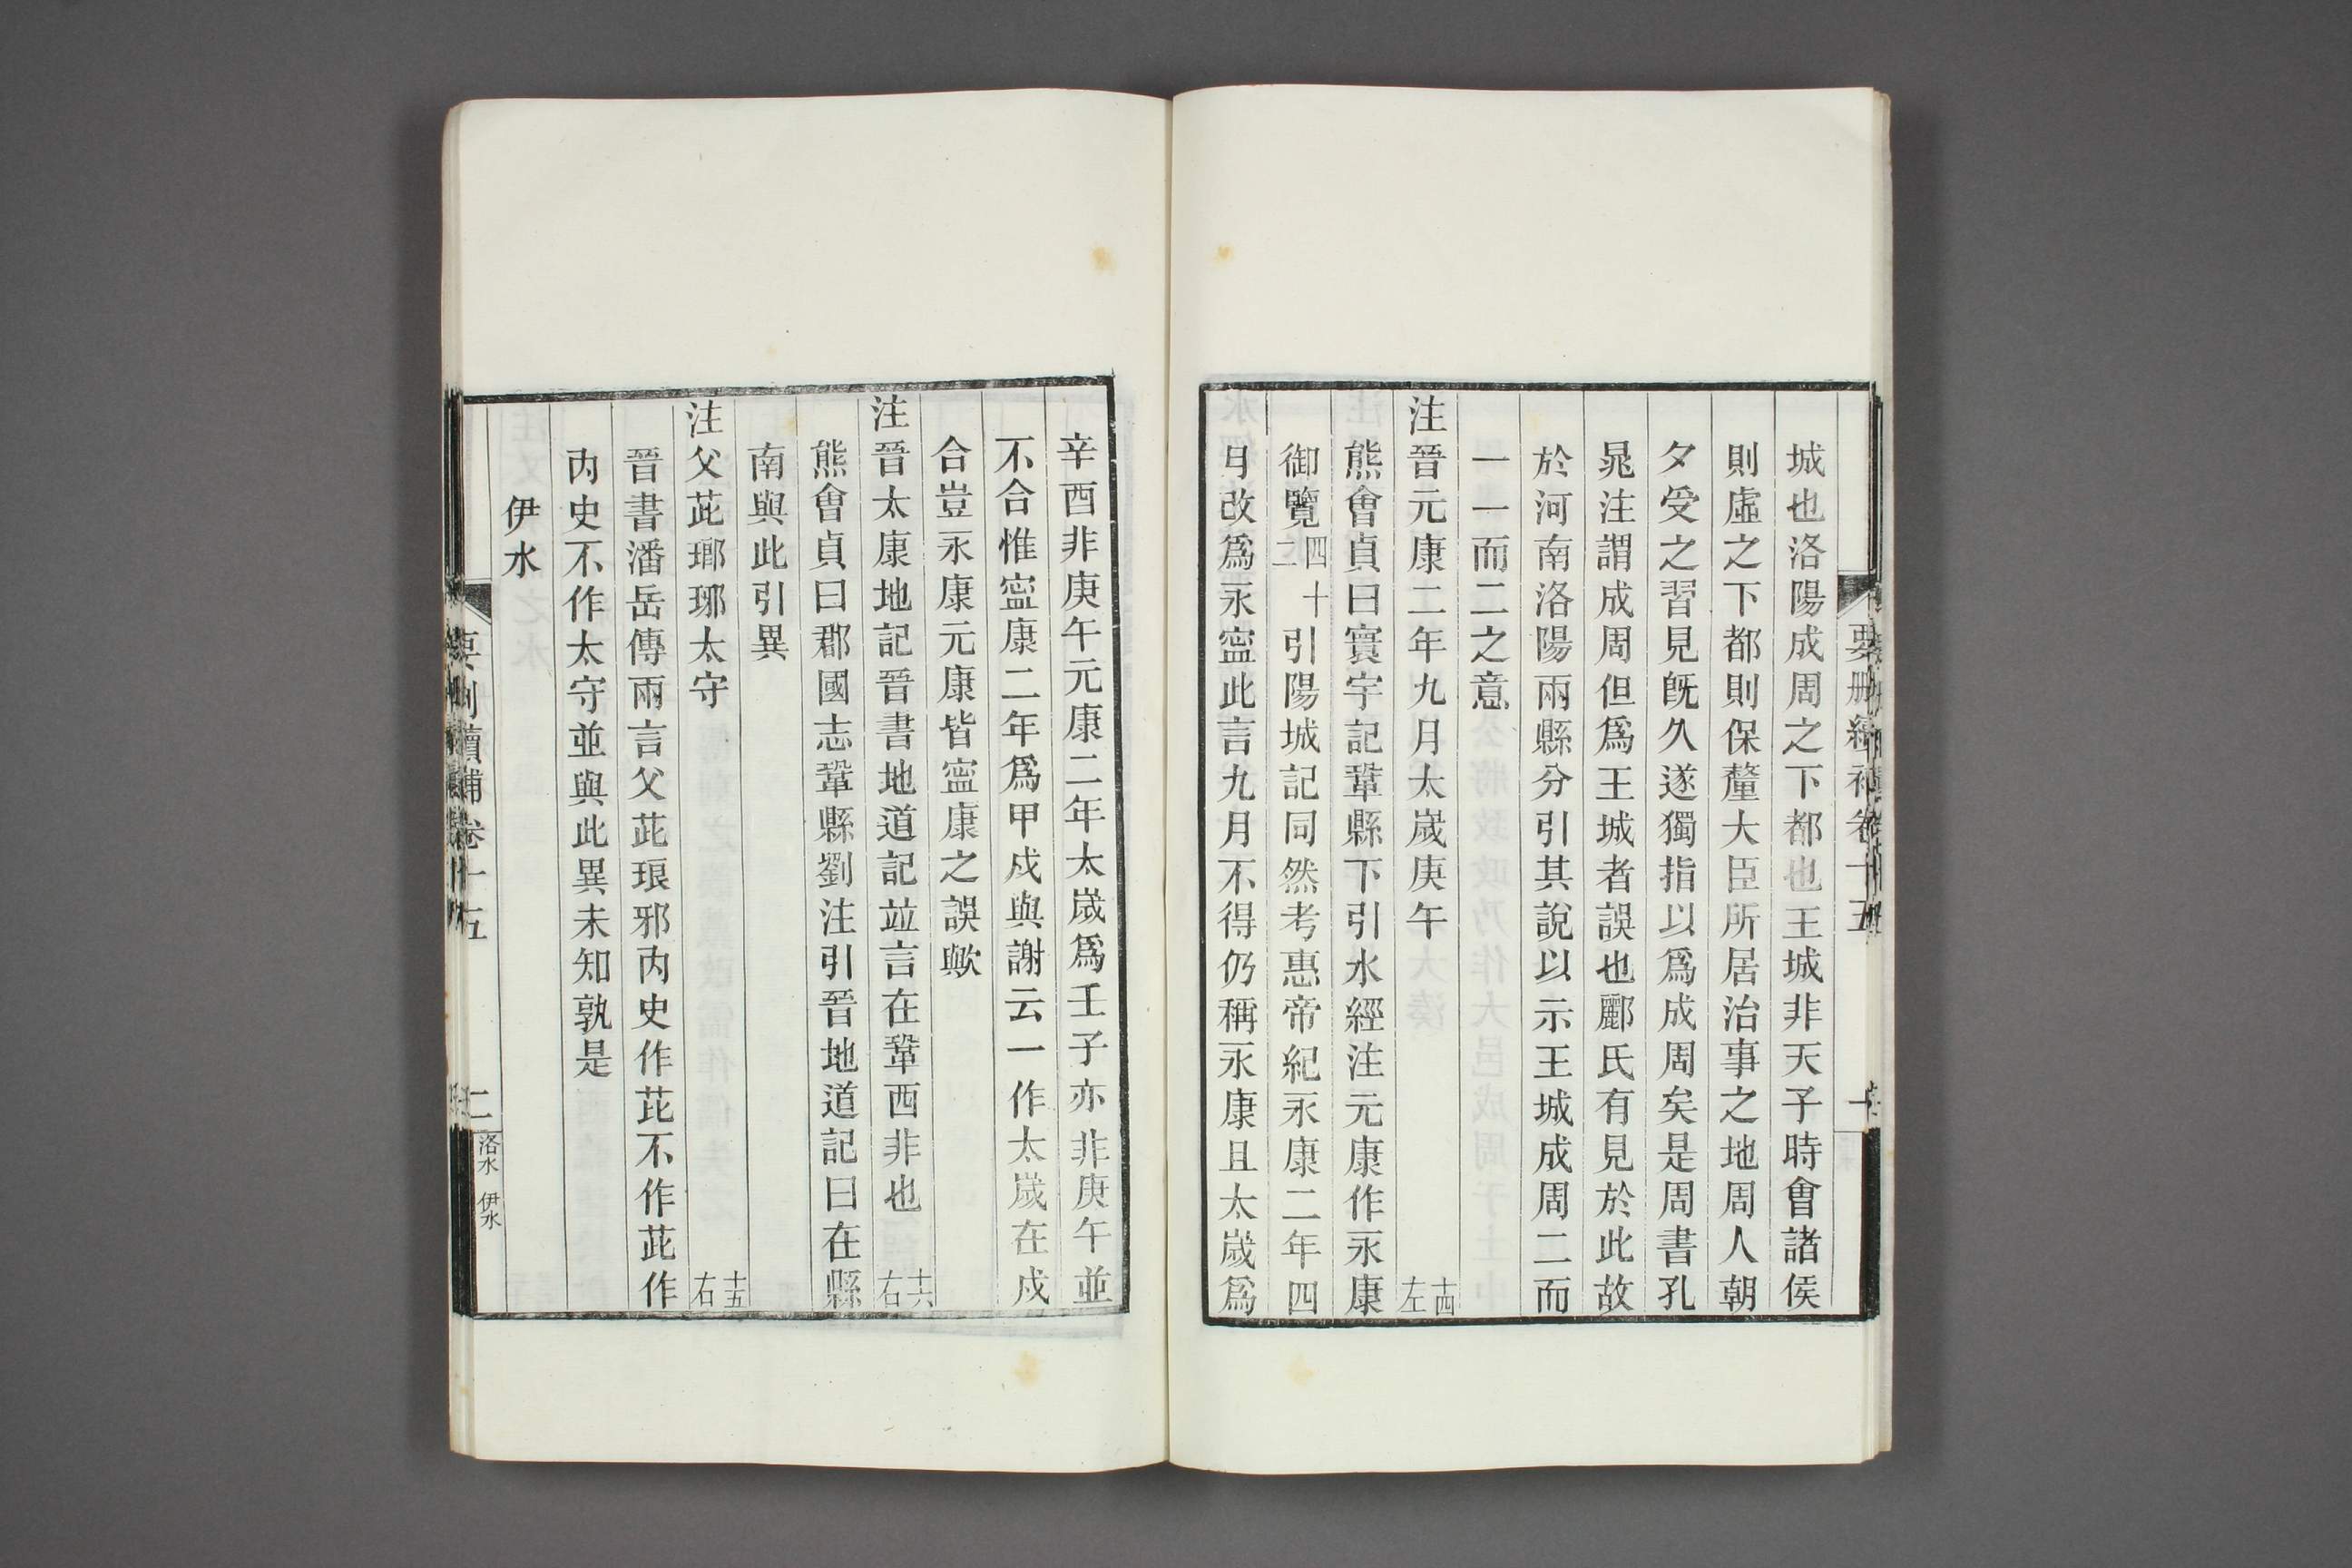 城也洛陽成周之下都也王城非天子時會諸侯
則虛之下都則保釐大臣所居治事之地周人朝
夕受之習見旣久遂獨指以爲成周矣是周書孔
晁注謂成周但爲王城者誤也酈氏有見於此故
於河南洛陽兩縣分引其說以示王城成周二而
一一而二之意
注晉元康二年九月太歲庚午 十四左
熊會貞曰寰宇記鞏縣下引水經注元康作永康
御覽四十二引陽城記同然考惠帝紀永康二年四
月改爲永寍此言九月不得仍稱永康且太歲爲
辛酉非庚午元康二年太歲爲壬子亦非庚午並
不合惟寍康二年爲甲戌與謝云一作太歲在戌
合豈永康元康皆寍康之誤歟
注晉太康地記晉書地道記竝言在鞏西非也 十六右
熊會貞曰郡國志鞏縣劉注引晉地道記曰在縣
南與此引異
注父茈瑯琊太守 十五右
晉書潘岳傳兩言父茈琅邪内史作芘不作茈作
内史不作太守並與此異未知孰是
伊水
要刪續補卷十五
二
洛水 伊水